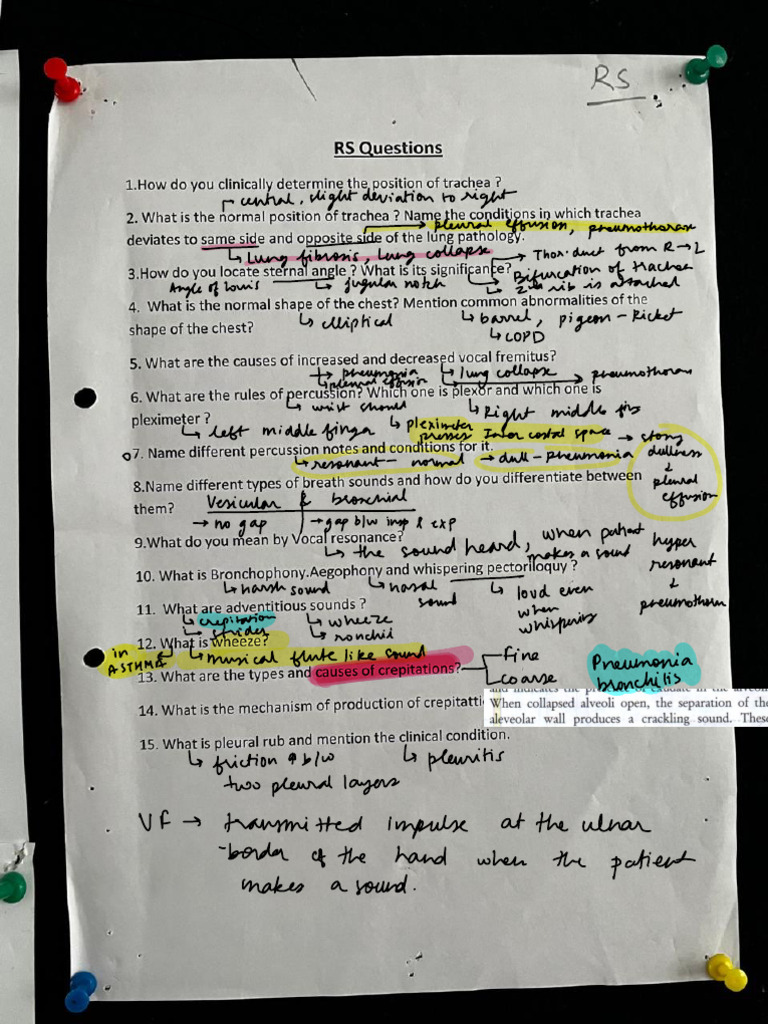 RS
RS Questions
1.How do you clinically determine the position of trachea ?
central, slight deviation to right
2. What is the normal position of trachea ? Name the conditions in which trachea
pleural effusion, pneumothorax
deviates to same side and opposite side of the lung pathology.
Lung fibrosis, Lung collapse
Thor. duct from R → L
3.How do you locate sternal angle ? What is its significance?
Bifurcation of trachea
Angle of Louis
jugular notch
2nd rib is attached
4. What is the normal shape of the chest? Mention common abnormalities of the
shape of the chest?
elliptical
barrel, pigeon - Ricket
COPD
5. What are the causes of increased and decreased vocal fremitus?
pneumonia
lung collapse
pneumothorax
pleural effusion
6. What are the rules of percussion? Which one is plexor and which one is
wrist should
Right middle
pleximeter ?
left middle finger
pleximeter
presses Inter costal space → stony
dullness
↓
pleural
effusion
7. Name different percussion notes and conditions for it.
resonant - normal → dull - pneumonia
8.Name different types of breath sounds and how do you differentiate between
them?
Vesicular & bronchial
→ no gap
→ gap b/w insp & exp
9.What do you mean by Vocal resonance?
the sound heard, when patient
makes a sound
hyper
resonant
↓
pneumothorax
10. What is Bronchophony.Aegophony and whispering pectoriloquy ?
harsh sound
nasal
sound
loud even
when
whispering
11. What are adventitious sounds ?
crepitation
wheeze
stridor
ronchi
12. What is wheeze?
in
ASTHMA
musical flute like sound
13. What are the types and causes of crepitations?
fine
coarse
Pneumonia
bronchilis
14. What is the mechanism of production of crepitati
When collapsed alveoli open, the separation of the
aleveolar wall produces a crackling sound. These
15. What is pleural rub and mention the clinical condition.
friction b/w
two pleural layers
pleuritis
VF → transmitted impulse at the ulnar
border of the hand when the patient
makes a sound.